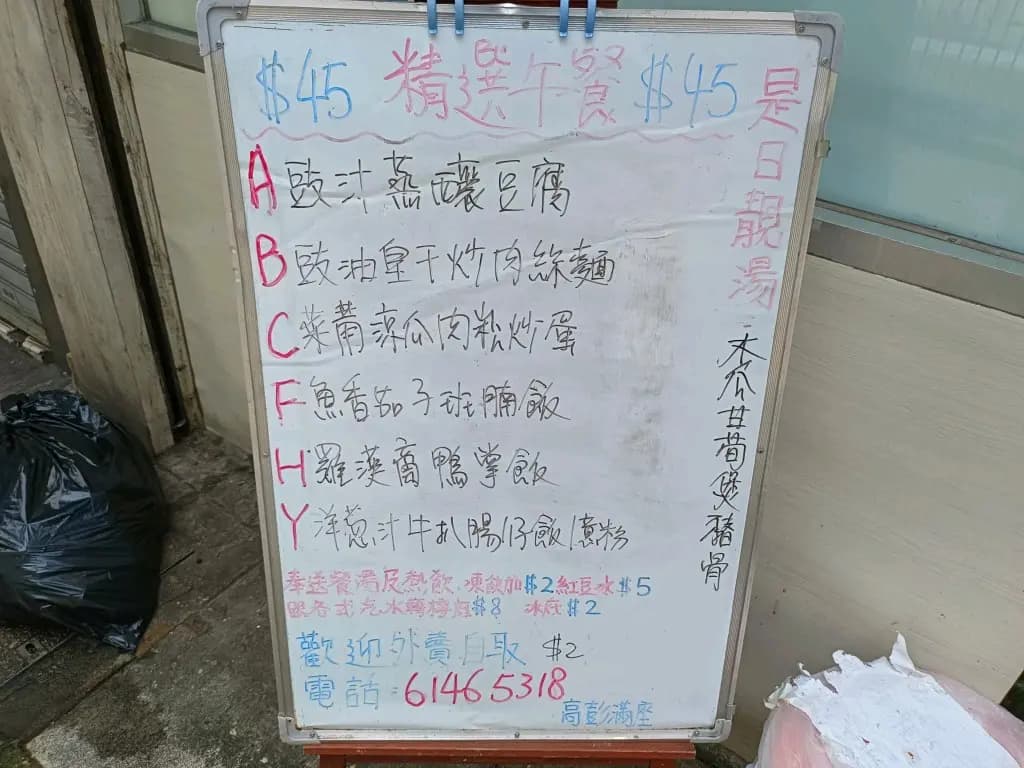 $45 精選午餐 $45
A 豉汁蒸釀豆腐
B 豉油皇干炒肉絲麵
C 菜莆涼瓜肉松炒蛋
F 魚香茄子班腩飯
H 羅漢齋鴨掌飯
Y 洋葱汁牛扒腸仔飯/意粉
奉送餐湯及熱飲 凍飲加$2 紅豆冰$5
跟各式汽水轉檸 $8 $2
歡迎外賣自取 $2
電話:61465318
高彭滿座
是日靚湯
木瓜甘荀煲豬骨